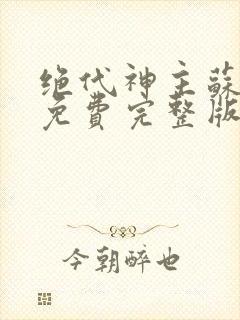 绝代神主蘇
免費完整版
今朝醉也